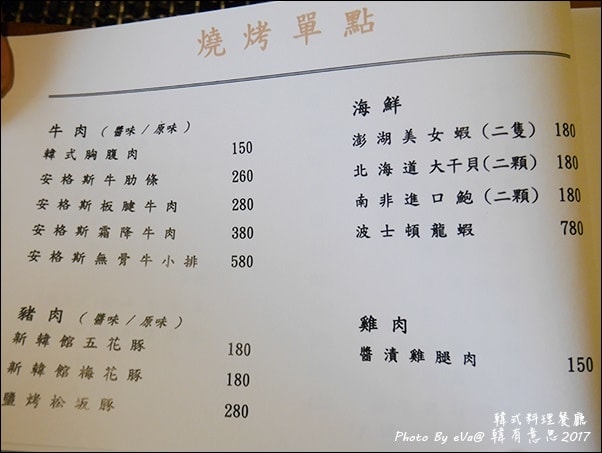 燒烤單點
牛肉 (醬味/原味)
韓式胸腹肉 150
安格斯牛肋條 260
安格斯板腱牛肉 280
安格斯霜降牛肉 380
安格斯無骨牛小排 580
豬肉 (醬味/原味)
新韓館五花豚 180
新韓館梅花豚 180
鹽烤松坂豚 280
海鮮
澎湖美女蝦(二隻) 180
北海道大干貝(二顆) 180
南非進口鮑(二顆) 180
波士頓龍蝦 780
雞肉
醬漬雞腿肉 150
韓式料理餐廳
Photo By eVa@ 韓有意思 2017